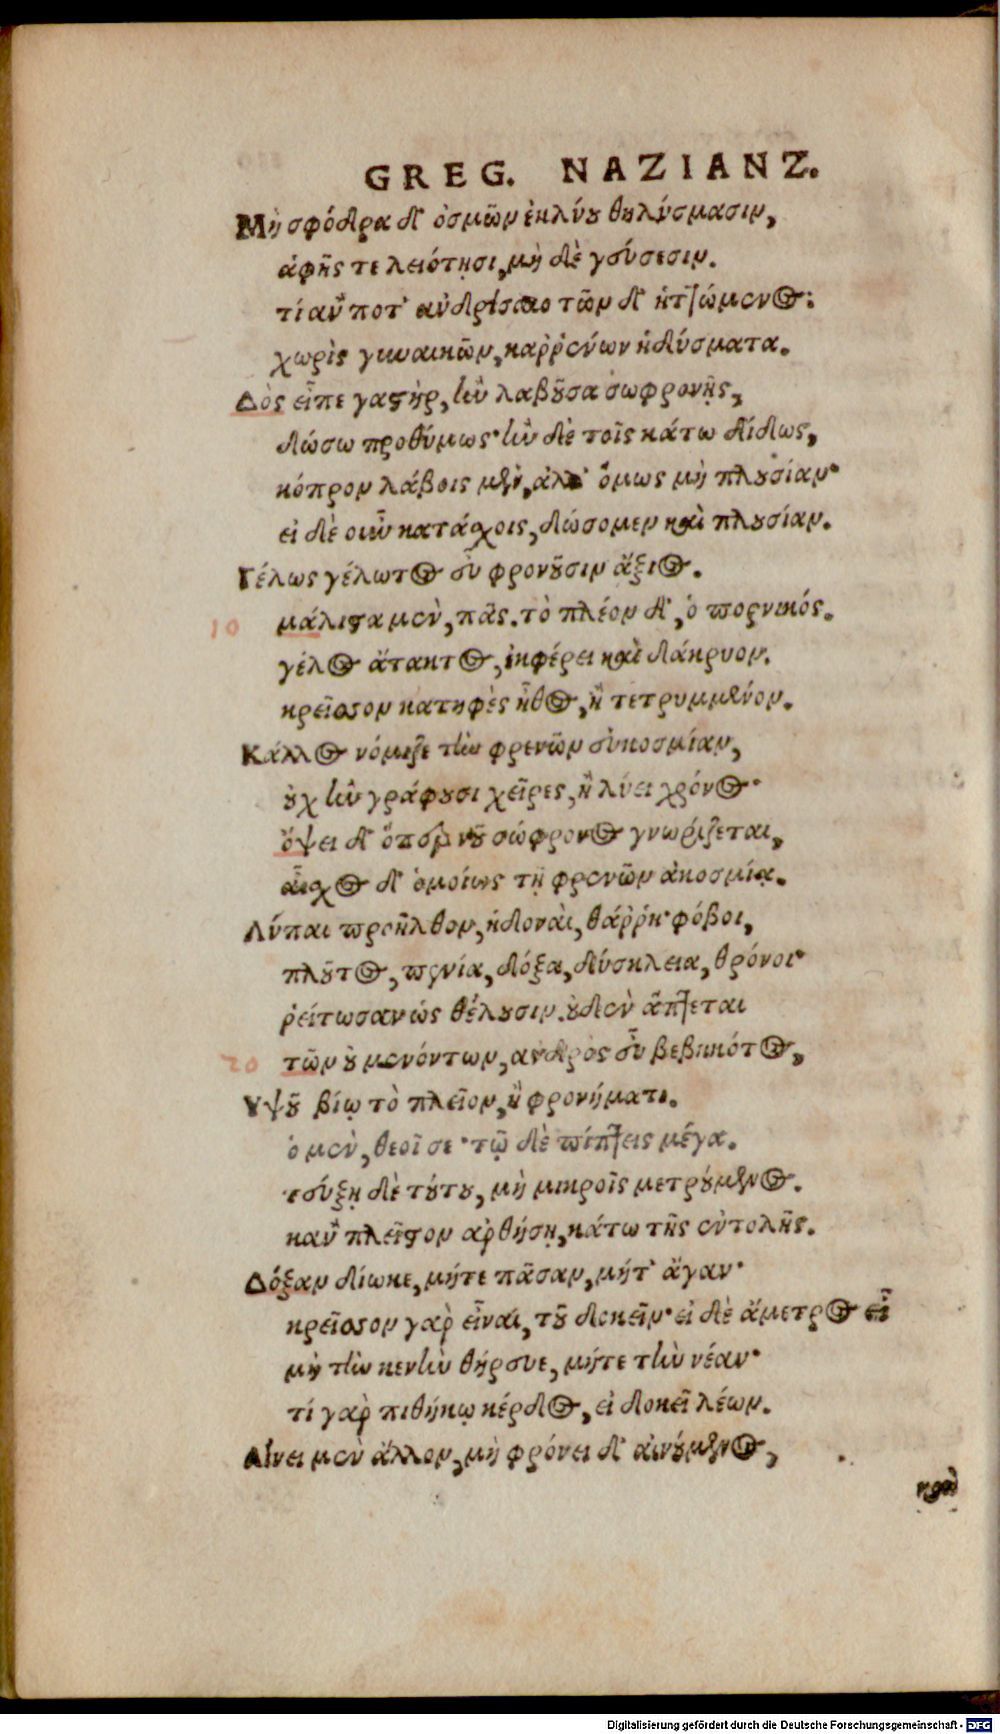 GREG. NAZIANZ.
Μὴ σφόδρα δ' ὀσμῶν ἐκλύου θηλύσμασιν,
ἁφῆς τε λειότησι, μὴ δὲ γεύσεσιν.
τί ἂν ποτ' ἀνδρίσαιο τῶν δ' ἡττώμενος:
χωρὶς γυναικῶν, καρρένων ἡδύσματα.
Δὸς εἶπε γαστὴρ, ἣν λαβοῦσα σωφρονῇς,
δώσω προθύμως· ἣν δὲ τοῖς κάτω διδως,
κόπρον λάβοις μὲν, ἀλλ' ὅμως μὴ πλουσίαν·
εἰ δὲ οὖν κατάχοις, δώσομεν καὶ πλουσίαν.
Γέλως γέλωτος εὖ φρονοῦσιν ἄξιος.
10 μάλιστα μὲν, πᾶς. τὸ πλέον δ', ὁ πορνικός.
γέλος ἄτακτος, ἐκφέρει καὶ δάκρυον.
κρεῖσσον κατηφὲς ἦθος, ἢ τετρυμμένον.
Κάλλος νόμιζε τὴν φρενῶν εὐκοσμίαν,
οὐχ ἣν γράφουσι χεῖρες, ἢ λύει χρόνος·
ὄψει δ' ὅπερ νοῦ σώφρονος γνωρίζεται,
αἶσχος δ' ὁμοίως τῇ φρενῶν ἀκοσμίᾳ.
Λύπαι προσῆλθον, ἡδοναὶ, θάρρη· φόβοι,
πλοῦτος, πενία, δόξα, δύσκλεια, θρόνοι·
ῥείτωσαν ὡς θέλουσιν. οὐδὲν ἅπτεται
20 τῶν οὐ μενόντων, ἀνδρὸς εὖ βεβηκότος,
Υψοῦ βίῳ τὸ πλεῖον, ἢ φρονήματι.
ὁ μὲν, θεοῖ σε· τῷ δὲ πίπτεις μέγα.
εὔξῃ δὲ τούτου, μὴ μικροῖς μετρούμενος.
κἂν πλεῖστον ἀρθήσῃ, κάτω τῆς ἐντολῆς.
Δόξαν δίωκε, μήτε πᾶσαν, μήτ' ἄγαν·
κρεῖσσον γὰρ εἶναι, τοῦ δοκεῖν· εἰ δὲ ἄμετρος εἶ
μὴ τὴν κενὴν θήρευε, μήτε τὴν νέαν·
τί γὰρ πιθήκῳ κέρδος, εἰ δοκεῖ λέων.
Αἴνει μὲν ἄλλον, μὴ φρόνει δ' αἰνούμενος,
καὶ
Digitalisierung gefördert durch die Deutsche Forschungsgemeinschaft - DFG